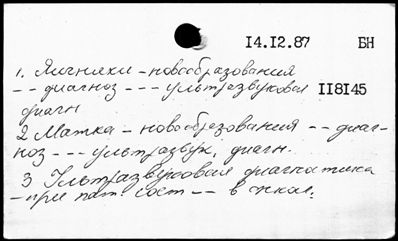 14.12.87 БН
1. Яичники - новообразования
-- диагноз --- ультразвуковая 118145
диагн
2 Матка - новообразования -- диаг-
ноз --- ультразвук. диагн.
3 Ультразвуковая диагностика
- при пат. сост -- в гинек.